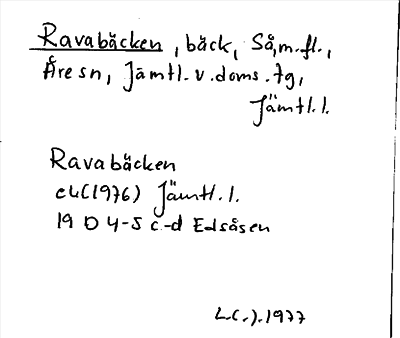 Ravabäcken, bäck, Så, m.fl.,
Åre sn, Jämtl. v. doms. tg,
Jämtl. l.
Ravabäcken
ek(1976) Jämtl. l.
19 D 4-5 c-d Edsåsen
L.(.).1977